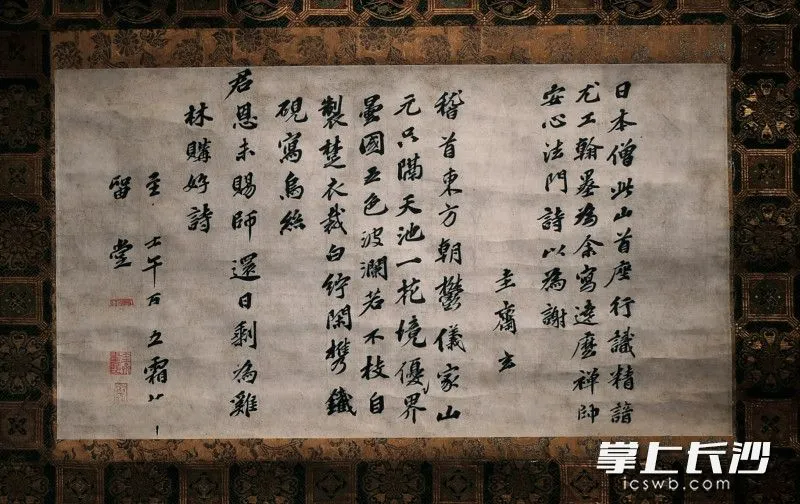 日本僧此山首座行識精諳
尤工翰墨為余寫達磨禪師
安心法門詩以為謝
圭齋玄
稽首東方朝鬱儀家山
元只隔天池一花境優界
曇國五色波瀾若不枝自
製楚衣裁白紵閑携鐵
硯寫烏絲
君恩未賜師還日剩為雞
林購好詩
至 壬午 五 霜
留堂
掌上长沙
icswb.com